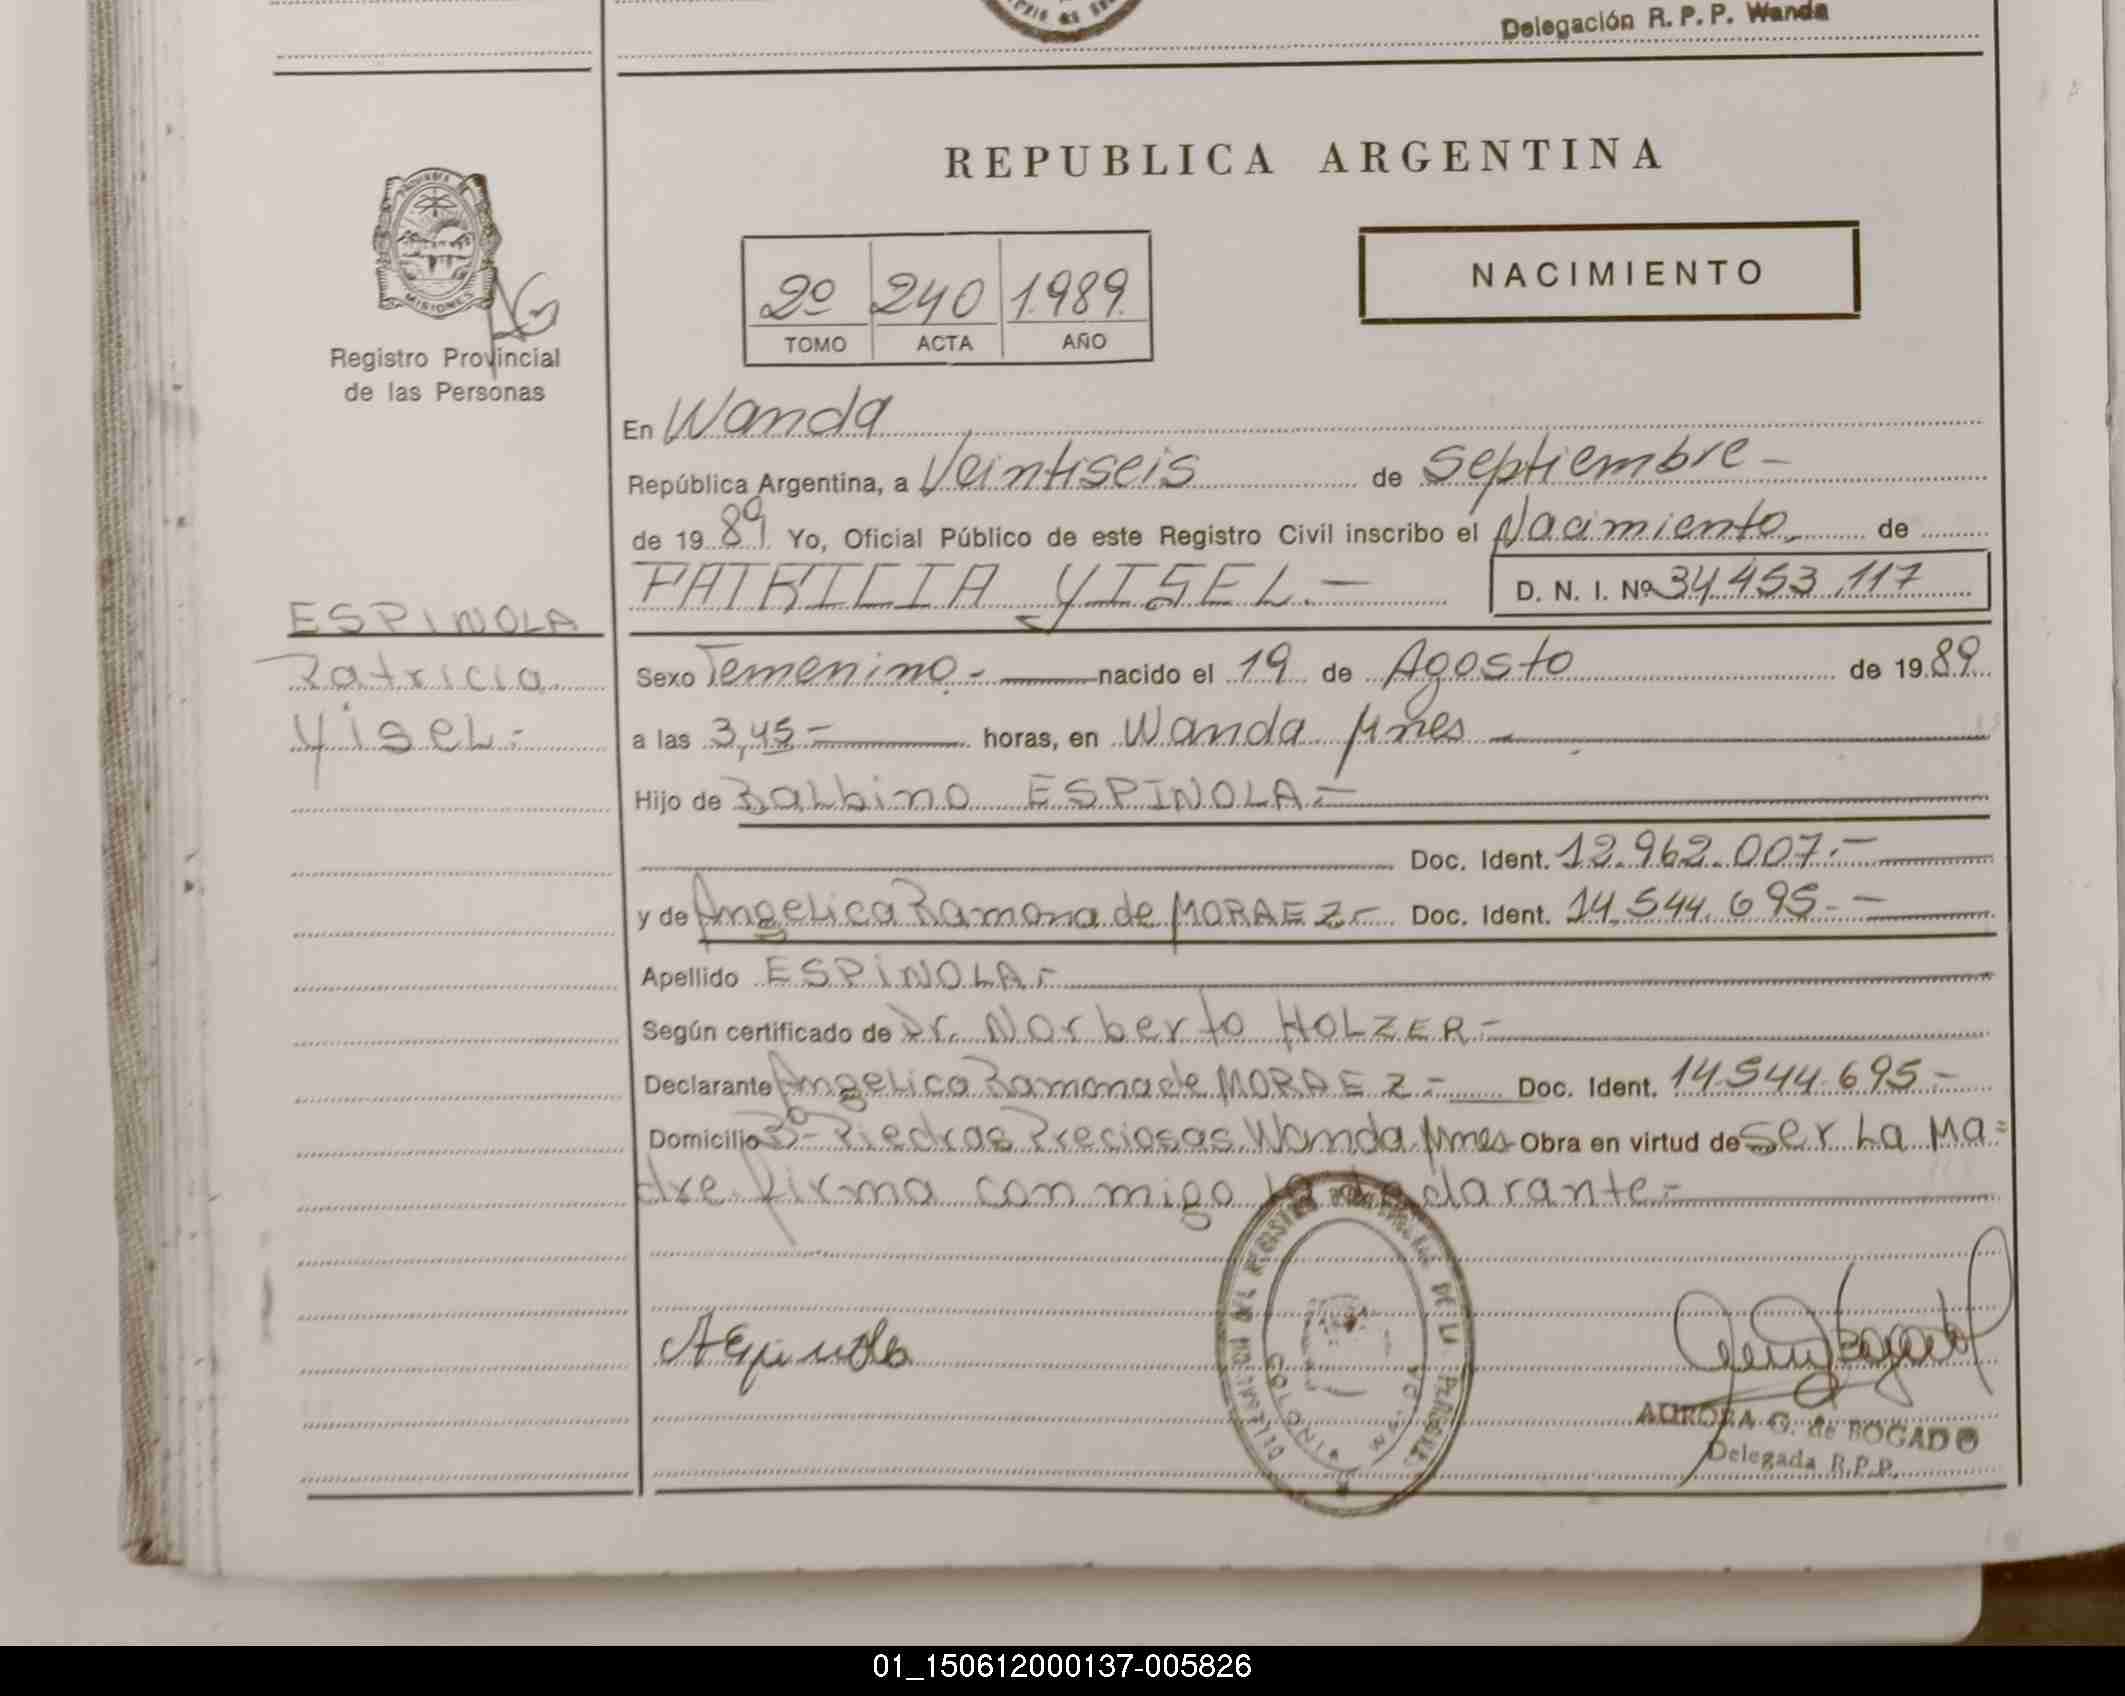 Delegación R. P. P. Wanda
REPUBLICA ARGENTINA
PROVINCIA
MISIONES
Registro Provincial
de las Personas
2º 240 1989
TOMO ACTA AÑO
NACIMIENTO
En Wanda
República Argentina, a Veintiseis de Septiembre -
de 19 89 Yo, Oficial Público de este Registro Civil inscribo el Nacimiento de
PATRICIA YISEL.-
D. N. I. Nº 34.453.117
ESPINOLA
Patricia
Yisel.-
Sexo Femenino.- nacido el 19 de Agosto de 19 89
a las 3,45- horas, en Wanda Mnes
Hijo de Balbino ESPINOLA.-
Doc. Ident. 12.962.007.-
y de Angelica Ramona de MORAEZ.- Doc. Ident. 14.544.695.-
Apellido ESPINOLA.-
Según certificado de Dr. Norberto HOLZER.-
Declarante Angelica Ramona de MORAEZ.- Doc. Ident. 14.544.695-
Domicilio Bº- Piedras Preciosas Wanda Mnes Obra en virtud de Ser La Ma=
dre firma con migo la declarante.-
AEspinola
DELEGACION DEL REGISTRO PROVINCIAL DE LAS PERSONAS
WANDA
AURORA G. de BOGADO
Delegada R.P.P.
01_150612000137-005826